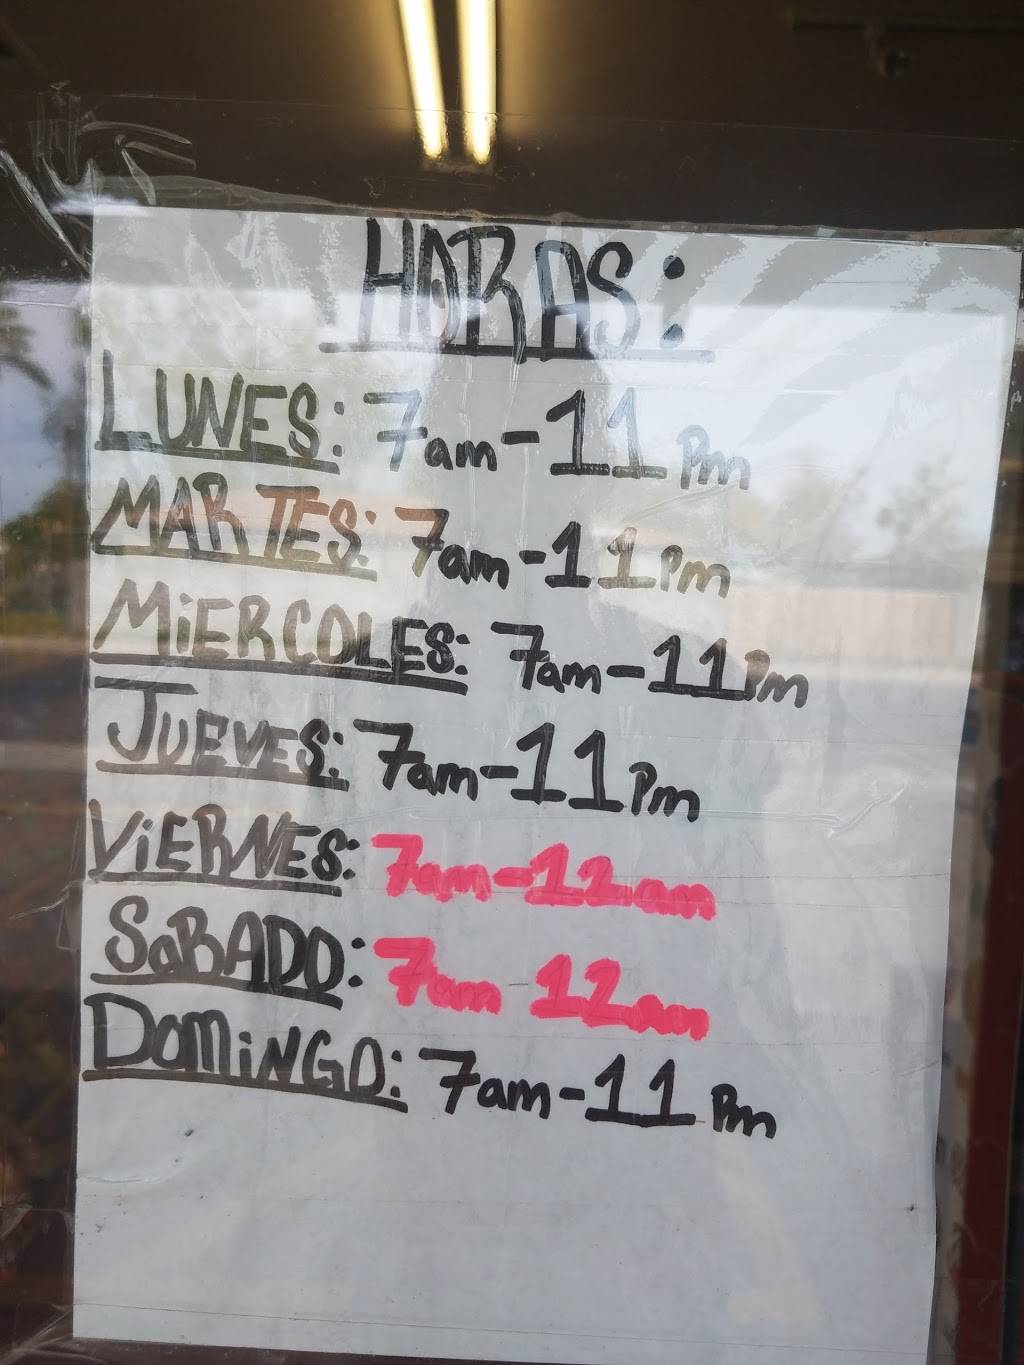 HORAS:
LUNES: 7am-11Pm
MARTES: 7am-11Pm
MiERCOLES: 7am-11Pm
JUEVES: 7am-11Pm
ViERNES: 7am-12am
SaBADO: 7am-12am
DOmiNGO: 7am-11Pm